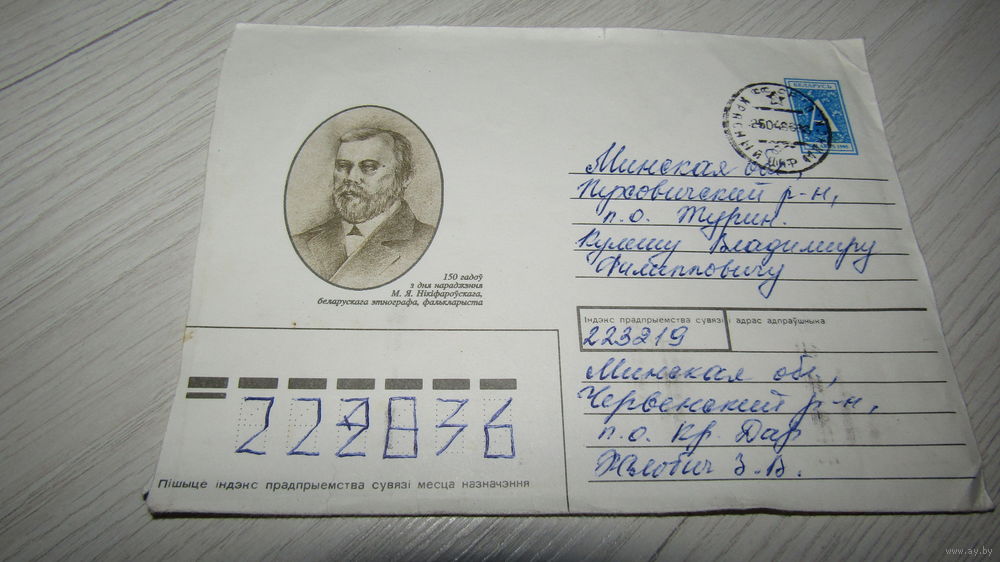 БЕЛАРУСЬ
Минская обл,
Пуховичский р-н,
п.о. Турин.
Кулешу Владимиру
Филипповичу
150 гадоў
з дня нараджэння
М. Я. Нікіфароўскага,
беларускага этнографа, фалькларыста
Індэкс прадпрыемства сувязі і адрас адпраўшчыка
223219
Минская обл,
Червенский р-н,
п.о. Кр. Дар
З.В.
222836
Пішыце індэкс прадпрыемства сувязі месца назначэння
www.ay.by